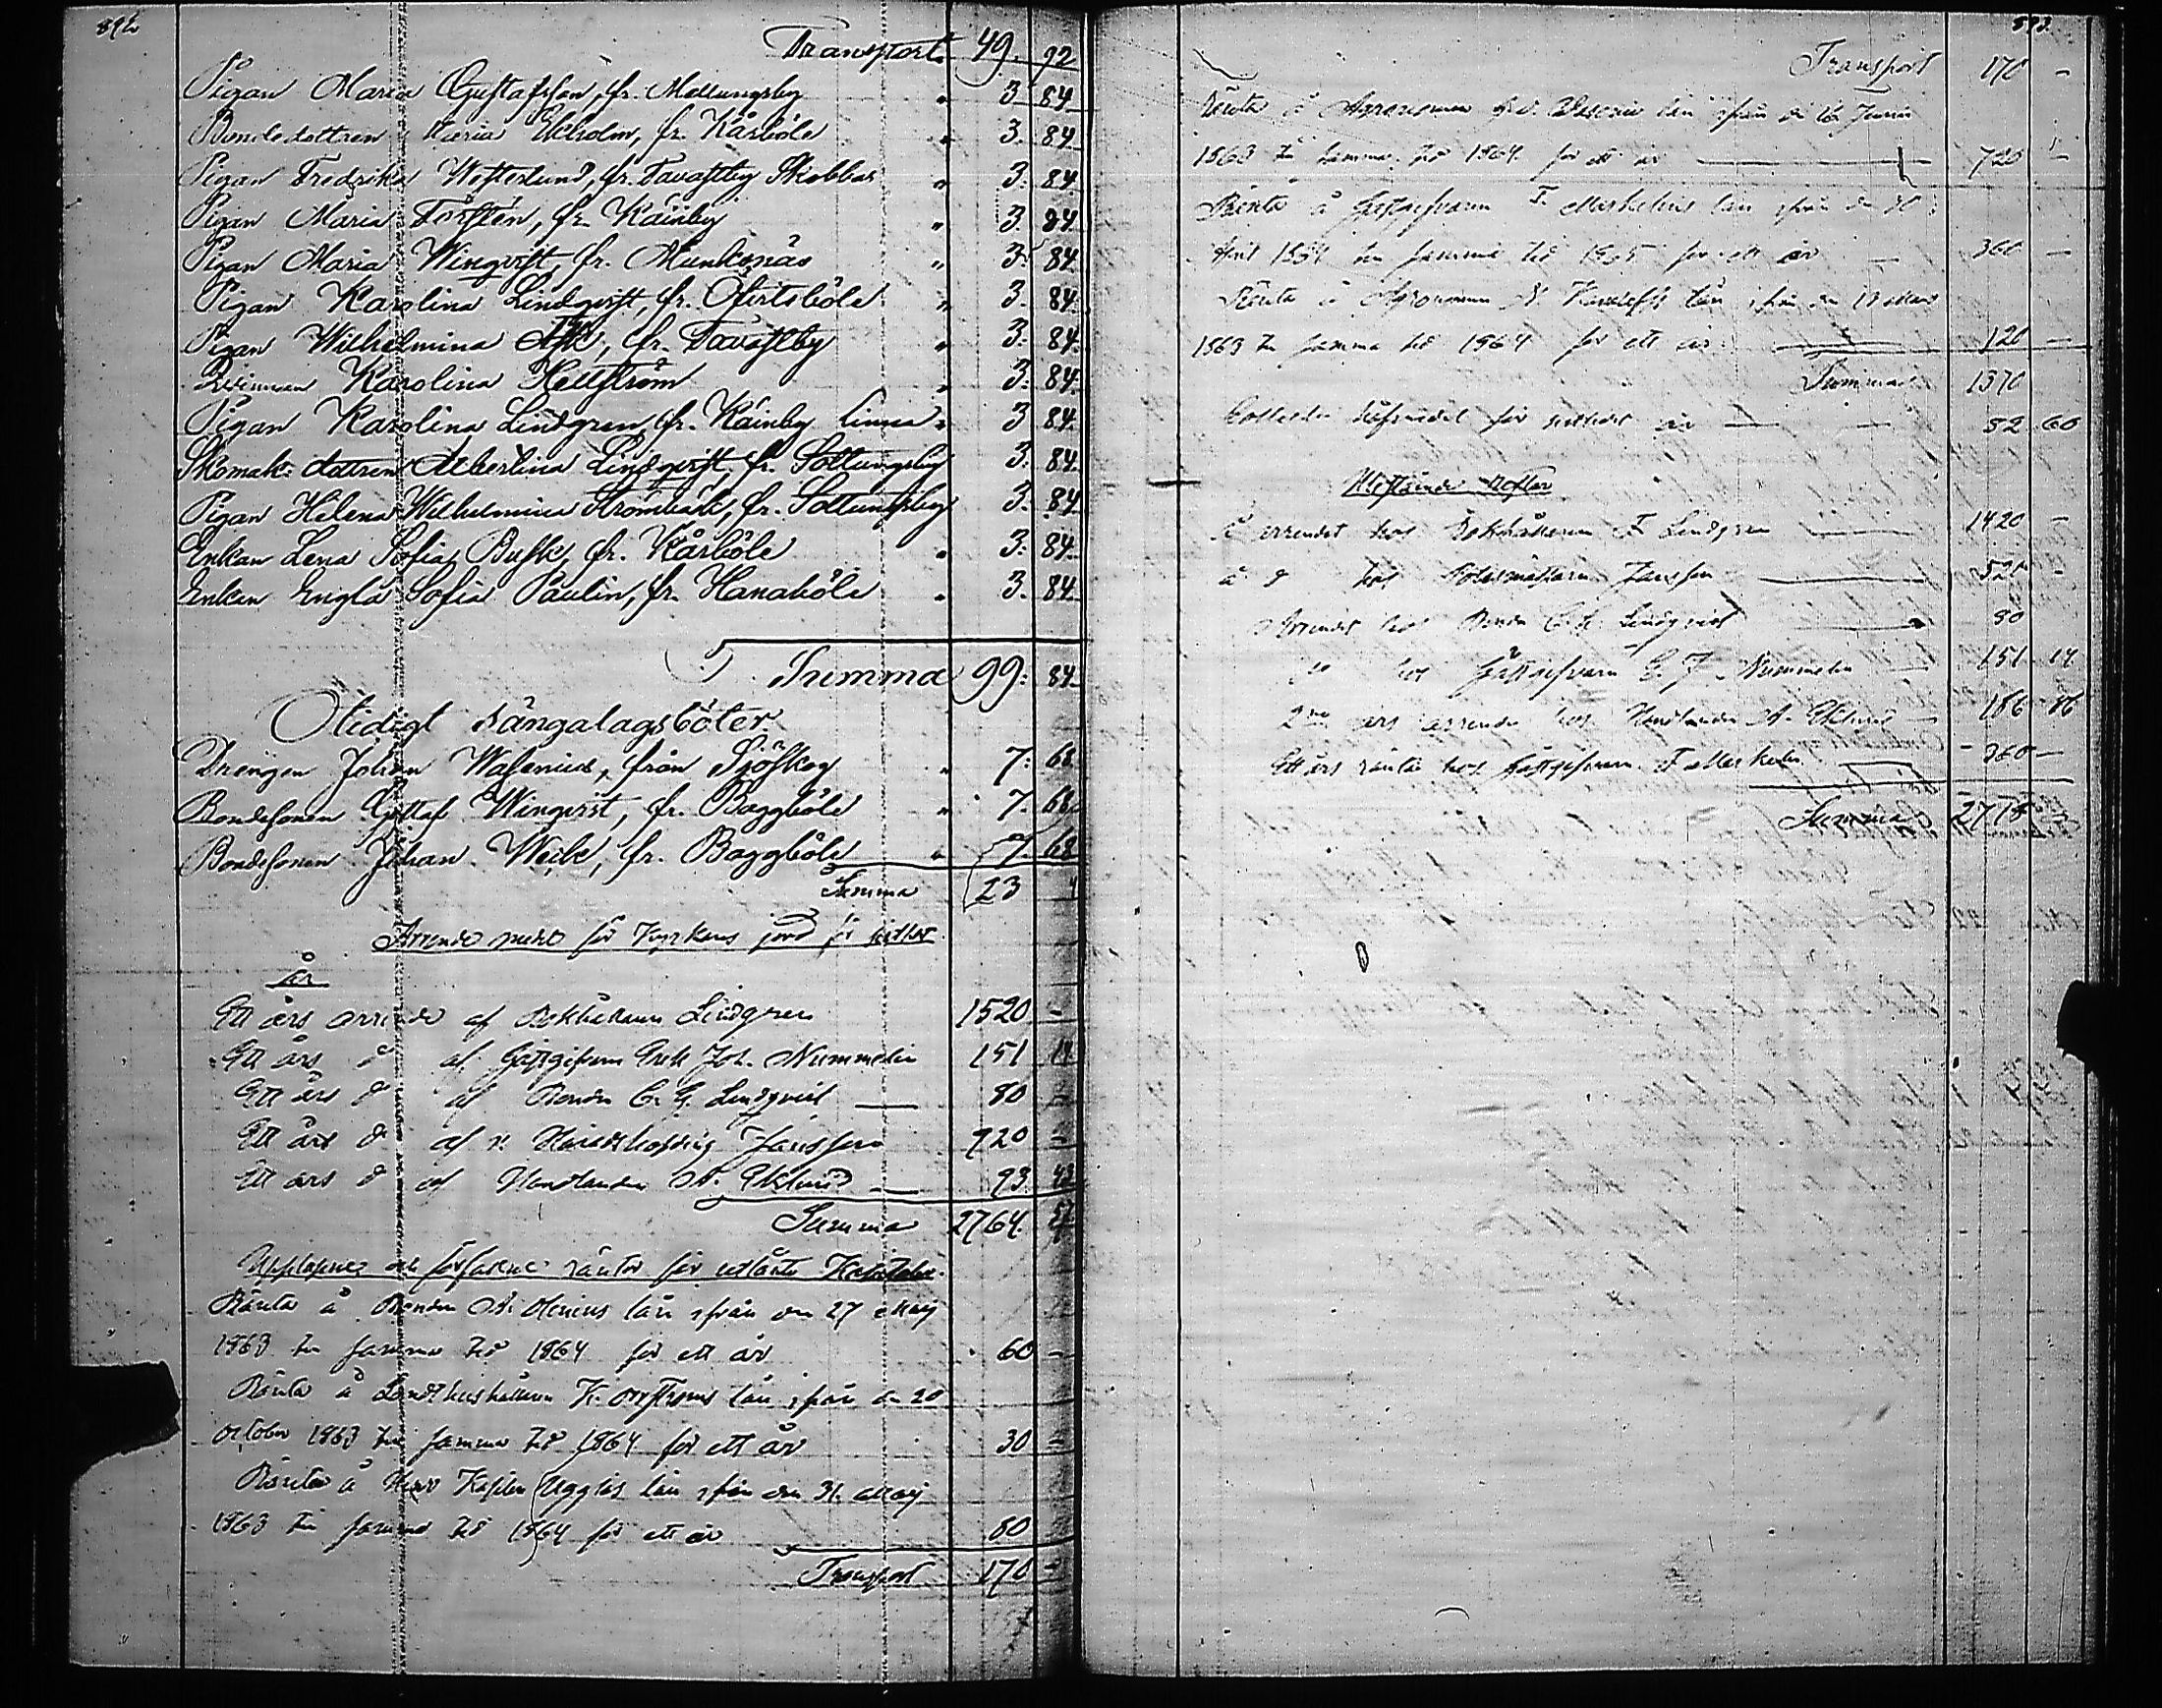 892
Transport 49. 92
Pigan Maria Gustafsson, fr. Mellungsby " 3. 84
Bondedottren Maria Ekholm, fr. Kårböle " 3. 84
Pigan Fredrika Westerlund, fr. Tavastby Skobbas " 3. 84
Pigan Maria Torstén, fr. Käinby " 3. 84
Pigan Maria Winqvist, fr. Munksnäs " 3. 84
Pigan Karolina Lindqvist, fr. Ofertsböle " 3. 84
Pigan Wilhelmina fr. Tavastby " 3. 84
Karolina Hellström " 3. 84
Pigan Karolina Lindgren, fr. Käinby " 3 84
Skomak: dottren Albertina Lindqvist, fr. Sottungsby 3. 84
Pigan Helena Wilhelmina Strömbäck, fr. Sottungsby 3. 84
Enkan Lena Sofia Busk, fr. Kårböle " 3. 84
Enkan Engla Sofia Paulin, fr. Hanaböle " 3. 84
Summa 99: 84
Otidigt sängalagsböter
Drängen Johan Wasenius, från Sjöskog " 7: 68
Bondesonen Gustaf Winqvist, fr. Baggböle " 7. 68
Bondesonen Johan Weik, fr. Baggböle " 7. 68
Summa 23 4
Arrende medel för Kyrkans jord för sistled
år
Ett års arrende af Bokhållaren Lindgren 1520 -
Ett års d af Gästgifvaren Erik Joh. Nummelin 151 14
Ett års d af Bonden C. G. Lindqvist 80 -
Ett års d af v. Häradshöfding Janssen 920 -
Ett års d af Handlanden A. Eklund 93 43
Summa 2764. 57
Upplupne och förfallne räntor för utlånta Kapitaler
Ränta å Bonden A. Alenius lån ifrån den 27 Maij
1863 till samma tid 1864 för ett år 60 -
Ränta å Landthushållaren K. lån ifrån den 20
October 1863 till samma tid 1864 för ett år 30 -
Ränta å Herr Kapten Ugglas lån ifrån den 31. Maij
1863 till samma tid 1864 för ett år 80
Transport 170 -
893.
Transport 170 -
Ränta å Agronomen lån ifrån den 16 Junii
1863 till samma tid 1864 för ett år 720 -
Ränta å Gästgifvaren F. Markelins lån ifrån den 30
April 1864 till samma tid 1865 för ett år 360 -
Ränta å Agronomen lån ifrån den 19 Mars
1863 till samma tid 1864 för ett år 120 -
Summa 1370
Collecter för sistledt år 52 60
Utestående Rester
å arrendet hos Bokhållaren F Lindgren 1420 -
å d hos Janssen 520 -
Arrendet hos Bonden C. G. Lindqvist 80
do hos Gästgifvaren E. J. Nummelin 151 14
2ne års arrende hos Handlanden A. Eklund 186 86
Ett års ränta hos Gästgifvaren F. Markelin 360 -
Summa 2718